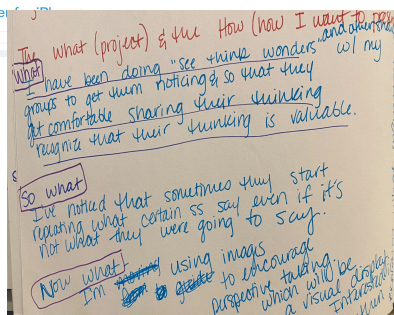 The What (project) & the How (how I want to
What
I have been doing "see think wonders" and other w/ my
groups to get them noticing & so that they
get comfortable sharing their thinking
recognize that their thinking is valuable.
So what
I've noticed that sometimes they start
repeating what certain ss say even if it's
not what they were going to say.
Now what
I'm using images
to encourage
perspective taking
which will be
a visual display